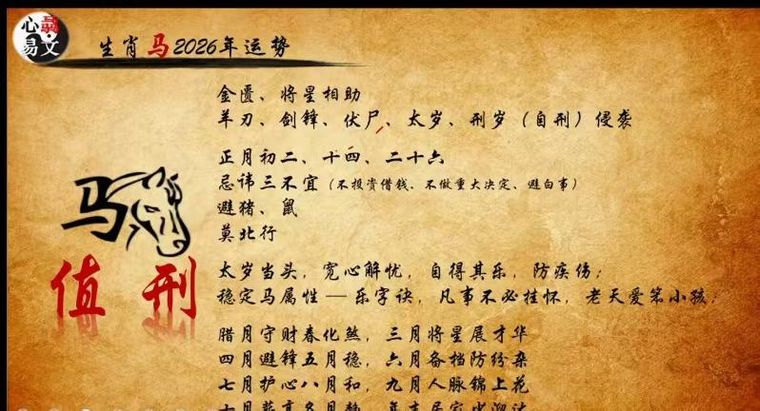 心易
龘文
生肖马2026年运势
金匮、将星相助
羊刃、剑锋、伏尸、太岁、刑岁（自刑）侵袭
正月初二、十四、二十六
忌讳三不宜（不投资借钱、不做重大决定、避白事）
避猪、鼠
莫北行
马
值 刑
太岁当头，宽心解忧，自得其乐，防疾伤；
稳定马属性—乐字诀，凡事不必挂怀，老天爱笨小孩；
腊月守财春化煞，三月将星展才华
四月避锋五月稳，六月备档防纷杂
七月护心八月和，九月人脉锦上花